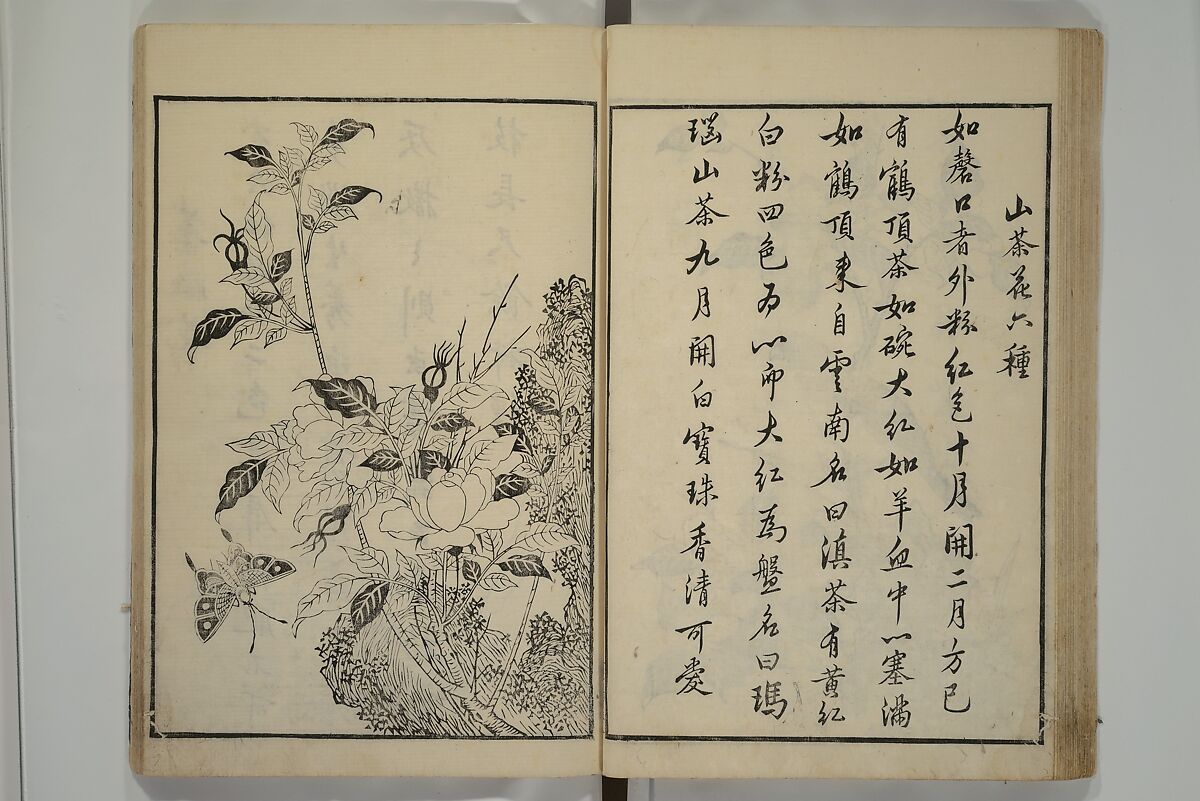 山茶花六種
如磬口者外粉紅色十月開二月方已
有鶴頂茶如碗大紅如羊血中心塞滿
如鶴頂來自雲南名曰滇茶有黃紅
白粉四色為心而大紅為盤名曰瑪
瑙山茶九月開白寶珠香清可愛